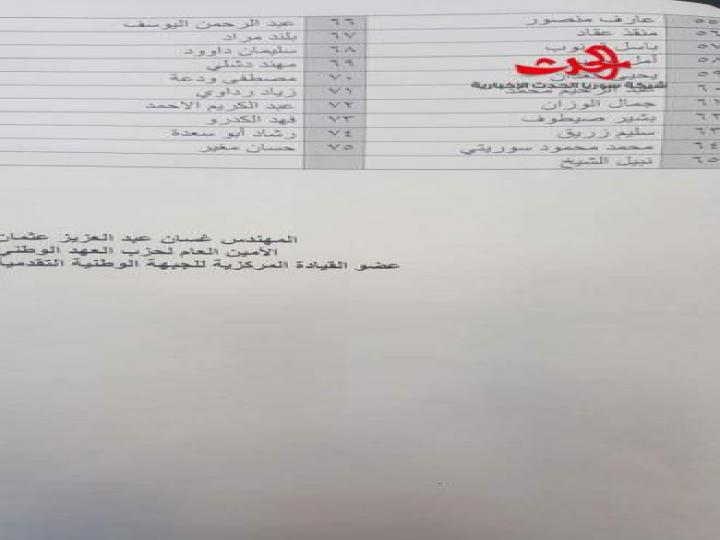 ٥٥ عارف منصور ٦٦ عبد الرحمن اليوسف
٥٦ منقذ عقاد ٦٧ بلند مراد
٥٧ باسل ٦٨ سليمان داوود
٥٨ أمل ٦٩ مهند دشلي
٥٩ يحيى ٧٠ مصطفى ودعة
٦٠ عبد الرحيم محمد ٧١ زياد رداوي
٦١ جمال الوزان ٧٢ عبد الكريم الاحمد
٦٢ بشير صيطوف ٧٣ فهد الكدرو
٦٣ سليم زريق ٧٤ رشاد أبو سعدة
٦٤ محمد محمود سوريتي ٧٥ حسان مغير
٦٥ نبيل الشيخ
الحدث
شبكة سوريا الحدث الإخبارية
المهندس غسان عبد العزيز عثمان
الأمين العام لحزب العهد الوطني
عضو القيادة المركزية للجبهة الوطنية التقدمية